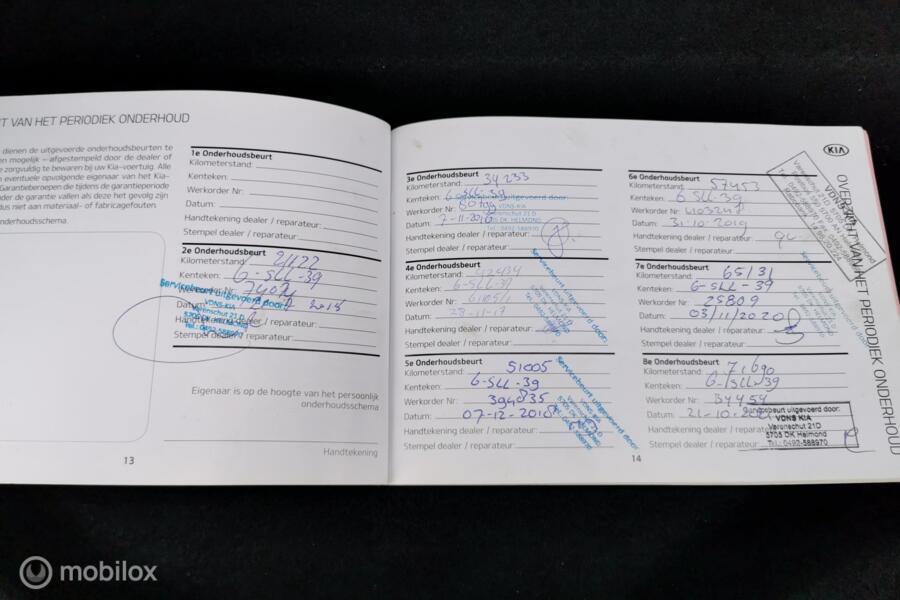 T VAN HET PERIODIEK ONDERHOUD
dienen de uitgevoerde onderhoudsbeurten te
en mogelijk – afgestempeld door de dealer of
e zorgvuldig te bewaren bij uw Kia-voertuig. Alle
n eventuele opvolgende eigenaar van het Kia-
Garantieberoepen die tijdens de garantieperiode
der de garantie vallen als deze het gevolg zijn
dus niet aan materiaal- of fabricagefouten
nderhoudsschema.
1e Onderhoudsbeurt
Kilometerstand:
Kenteken:
Werkorder Nr:
Datum:
Handtekening dealer / reparateur:
Stempel dealer / reparateur:
2e Onderhoudsbeurt
Kilometerstand: 21122
Kenteken: G-SLL-39
Werkorder Nr:
Datum: 2015
Handtekening dealer / reparateur:
Stempel dealer / reparateur:
Servicebeurt uitgevoerd door:
VDNS-KIA
Varenschut 21 D
5705 DK HELMOND
Tel.: 0492-588970
Eigenaar is op de hoogte van het persoonlijk
onderhoudsschema
Handtekening
13
3e Onderhoudsbeurt
Kilometerstand: 34233
Kenteken: G-SLL-39
Werkorder Nr:
Datum: 7-11-2016
Handtekening dealer / reparateur:
Stempel dealer / reparateur:
VDNS-KIA
Varenschut 21 D
5705 DK HELMOND
Tel.: 0492-588970
4e Onderhoudsbeurt
Kilometerstand: 42434
Kenteken: G-SLL-39
Werkorder Nr:
Datum: 28-11-17
Handtekening dealer / reparateur:
Stempel dealer / reparateur:
Servicebeurt uitgevoerd door:
5e Onderhoudsbeurt
Kilometerstand: 51005
Kenteken: G-SLL-39
Werkorder Nr: 394835
Datum: 07-12-2018
Handtekening dealer / reparateur:
Stempel dealer / reparateur:
Servicebeurt uitgevoerd door:
VDNS-KIA
Varenschut 21 D
5705 DK HELMOND
14
KIA
OVERZICHT VAN HET PERIODIEK ONDERHOUD
6e Onderhoudsbeurt
Kilometerstand: 57453
Kenteken: G-SLL-39
Werkorder Nr:
Datum: 31-10-2019
Handtekening dealer / reparateur:
Stempel dealer / reparateur:
7e Onderhoudsbeurt
Kilometerstand: 65131
Kenteken: G-SLL-39
Werkorder Nr: 25809
Datum: 03/11/2020
Handtekening dealer / reparateur:
Stempel dealer / reparateur:
8e Onderhoudsbeurt
Kilometerstand: 71690
Kenteken: G-SLL-39
Werkorder Nr: 34454
Datum: 21-10-2021
Handtekening dealer / reparateur:
Stempel dealer / reparateur:
Servicebeurt uitgevoerd door:
VDNS KIA
Varenschut 21D
5705 DK Helmond
Tel.: 0492-588970
mobilox